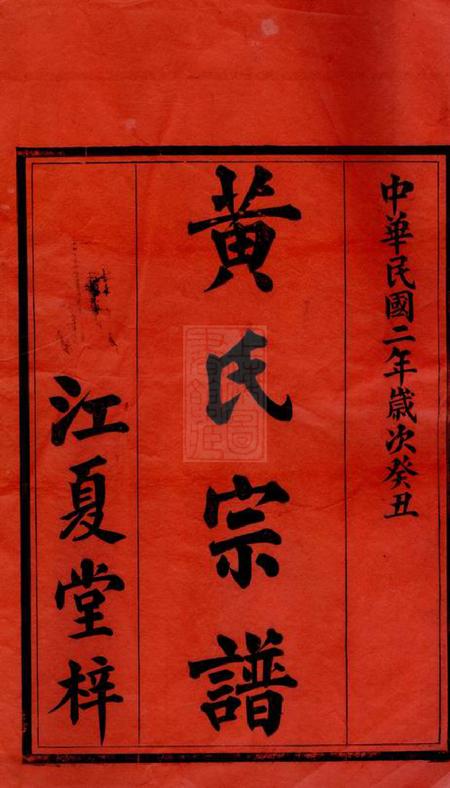 中華民國二年歲次癸丑
黃氏宗譜
江夏堂梓